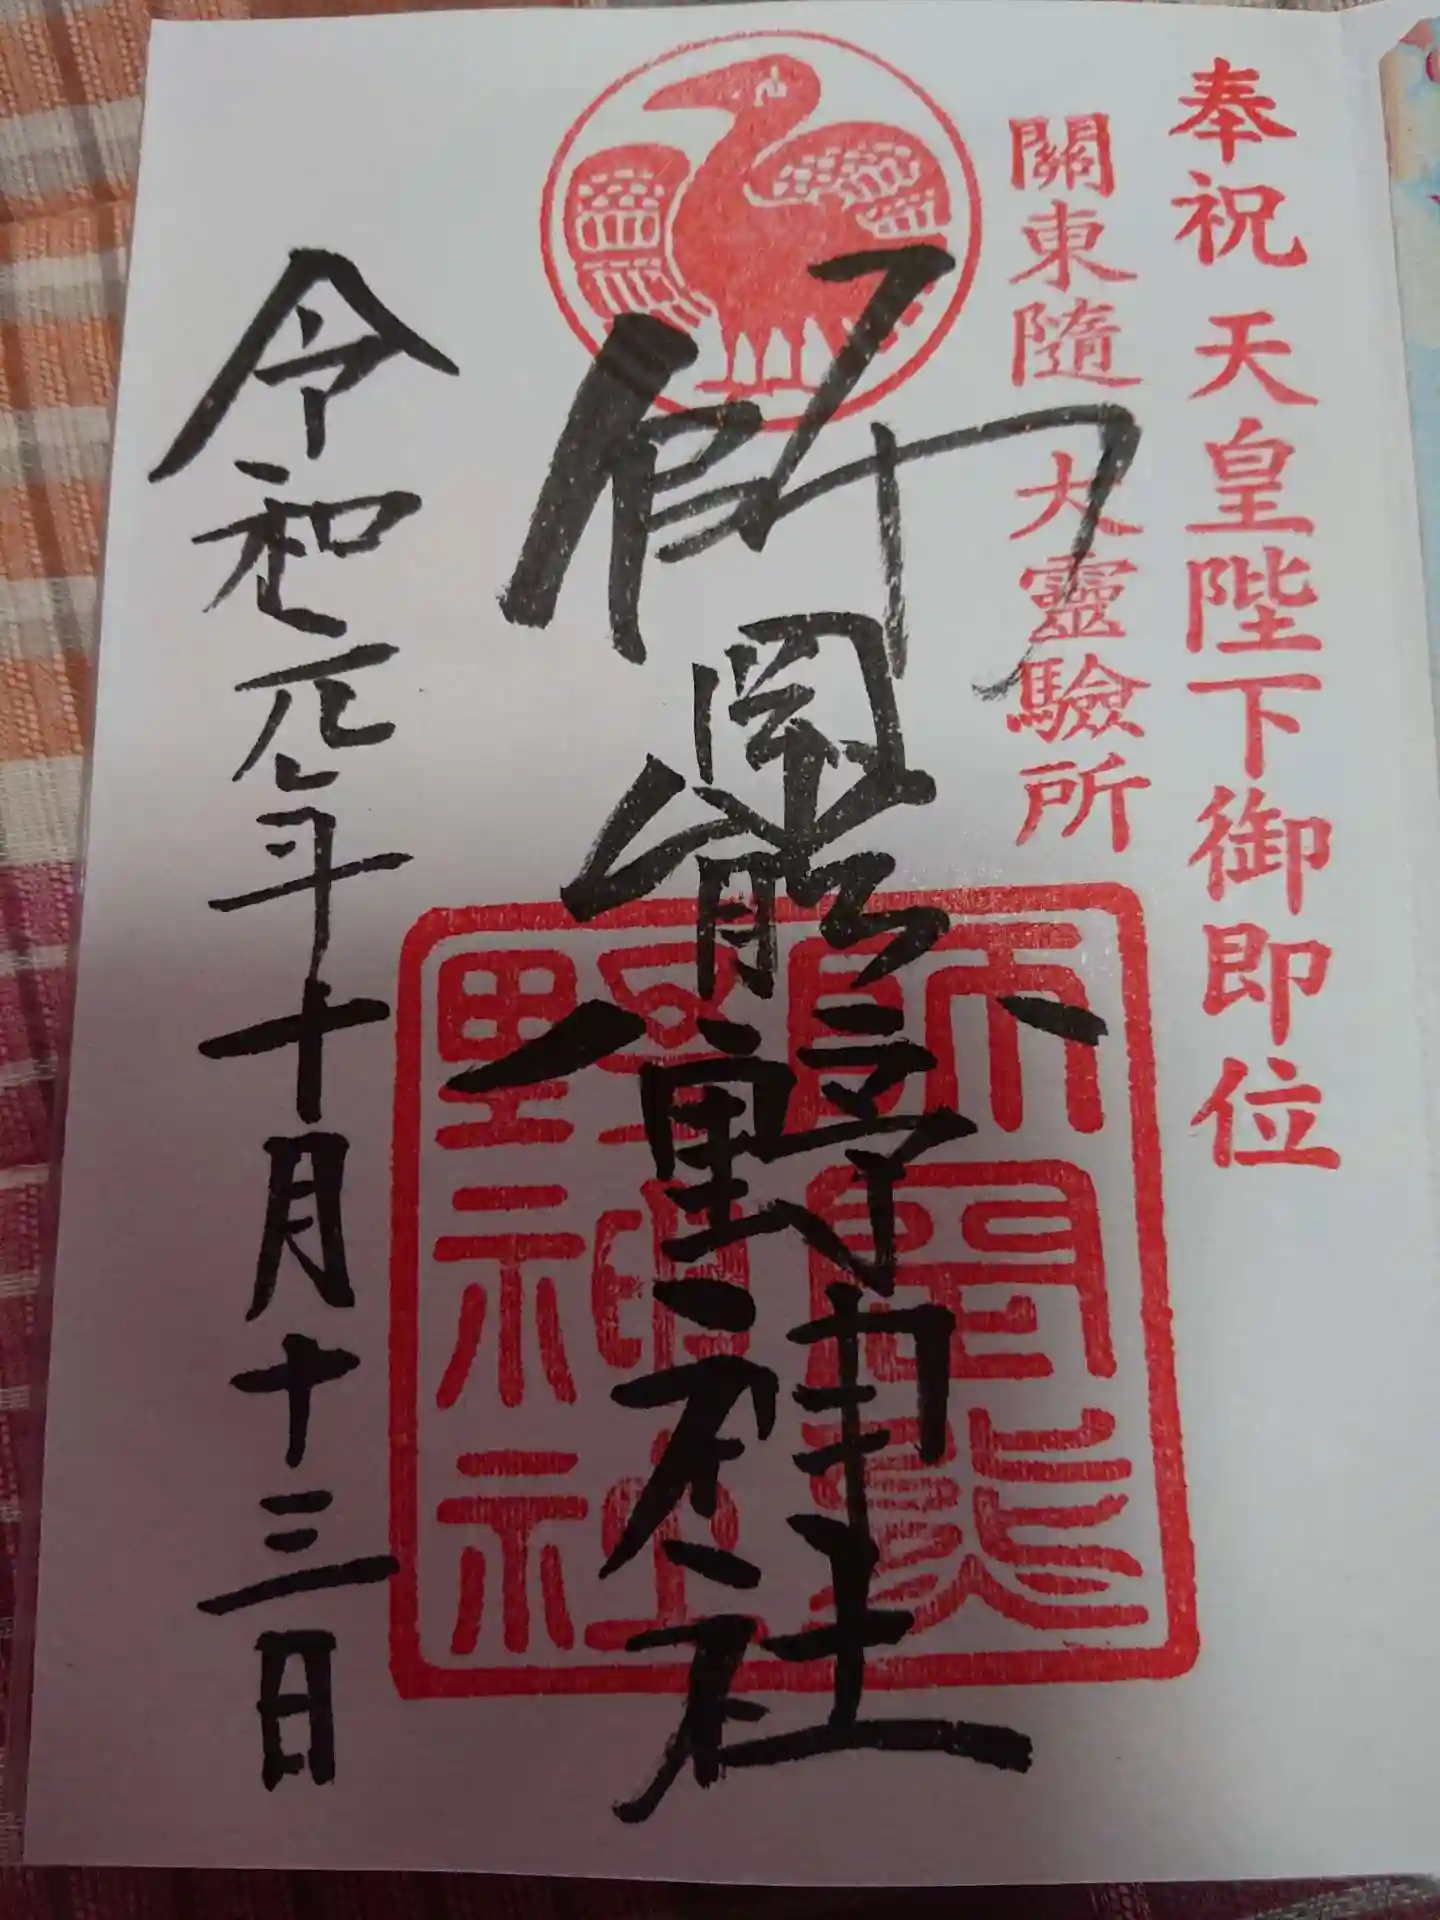 奉祝 天皇陛下御即位
關東隨一大靈驗所
師岡熊野神社
師岡熊
野神社
令和元年十月十三日